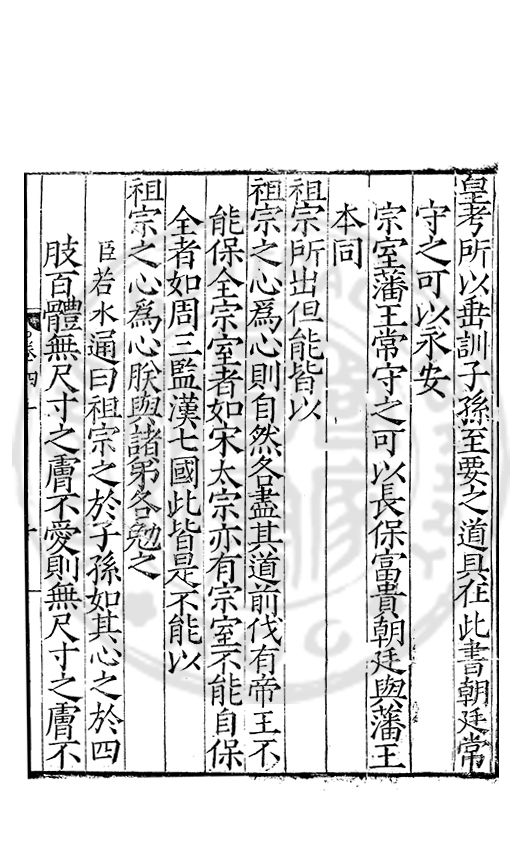 皇考所以垂訓子孫至要之道具在此書朝廷常
守之可以永安
宗室藩王常守之可以長保富貴朝廷與藩王
本同
祖宗所出但能皆以
祖宗之心爲心則自然各盡其道前伐有帝王不
能保全宗室者如宋太宗亦有宗室不能自保
全者如周三監漢七國此皆是不能以
祖宗之心爲心朕與諸弟各勉之
臣若水通曰祖宗之於子孫如其心之於四
肢百體無尺寸之膚不愛則無尺寸之膚不
卷四十